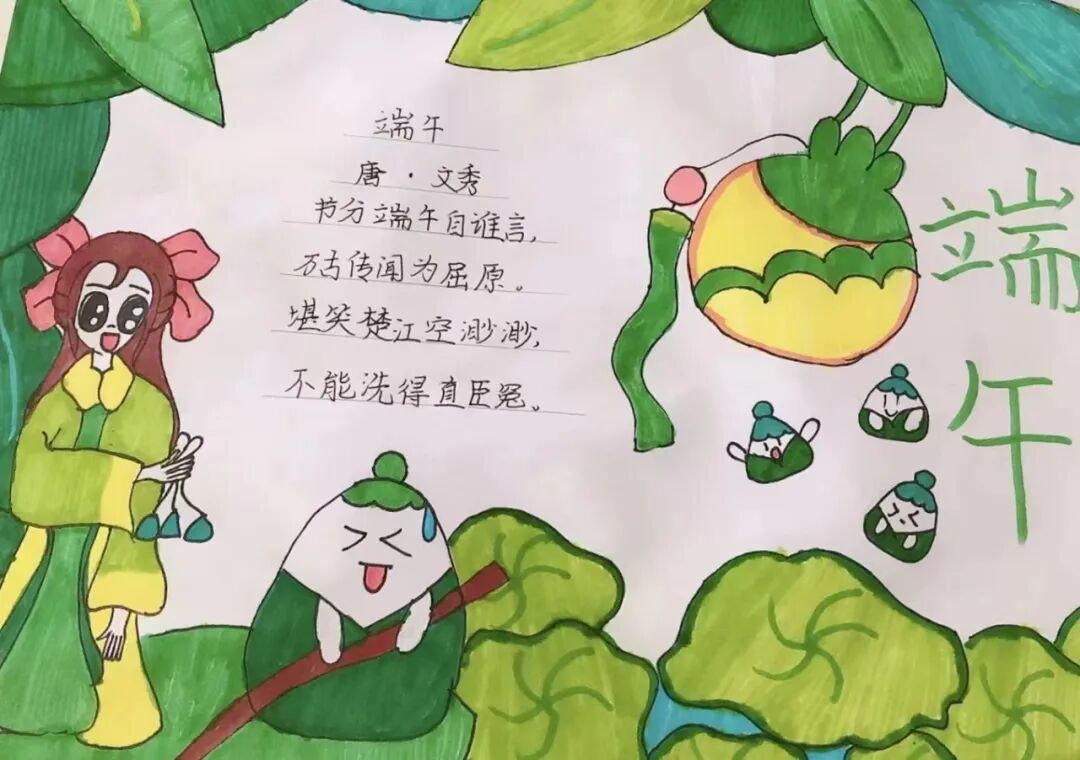 端午
唐·文秀
节分端午自谁言，
万古传闻为屈原。
堪笑楚江空渺渺，
不能洗得直臣冤。
端午